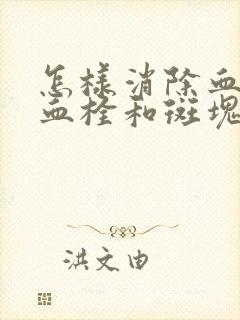 怎样消除血
血栓和斑块
洪文由